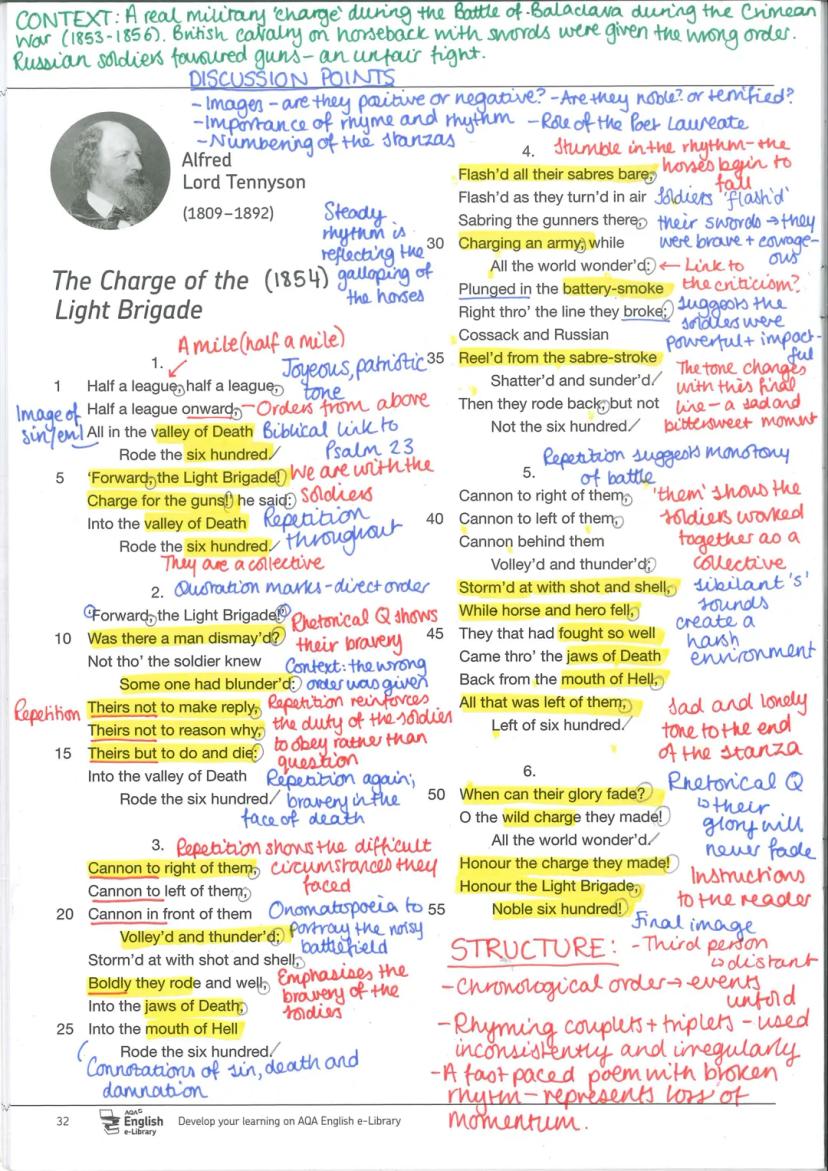 CONTEXT: A real military 'charge' during the Battle of Balaclava during the Crimean
War (1853-1856). British cavalry on horseback with swords were given the wrong order.
Russian soldiers favoured guns – an unfair fight.
DISCUSSION POINTS
- Images - are they positive or negative? - Are they noble? or terrified?
- Importance of rhyme and rhythm - Role of the Poet Laureate
- Numbering of the stanzas
Alfred
Lord Tennyson
(1809–1892)
Steady
rhythm is
reflecting the
galloping of
the horses
The Charge of the (1854)
Light Brigade
A mile (half a mile)
1.
Joyeous, patriotic
tone
1 Half a league, half a league,
Half a league onward, - Orders from above
Image of
sin/evil
All in the valley of Death Biblical link to
Psalm 23
Rode the six hundred.
5 'Forward, the Light Brigade! We are with the
soldiers
Charge for the guns!' he said:
Into the valley of Death Repetition
throughout
Rode the six hundred.
They are a collective
2. Quotation marks - direct order
'Forward, the Light Brigade!'
Rhetorical Q shows
their bravery
10 Was there a man dismay'd?
Not tho' the soldier knew
Context: the wrong
order was given
Some one had blunder'd:
Repetition
Theirs not to make reply,
Theirs not to reason why,
15 Theirs but to do and die:
Repetition reinforces
the duty of the soldiers
to obey rather than
question
Into the valley of Death
Rode the six hundred.
Repetition again;
bravery in the
face of death
3. Repetition shows the difficult
circumstances they
faced
Cannon to right of them,
Cannon to left of them,
20 Cannon in front of them
Volley'd and thunder'd;
Onomatopoeia to
portray the noisy
battlefield
Storm'd at with shot and shell,
Boldly they rode and well,
Emphasises the
bravery of the
soldies
Into the jaws of Death,
25 Into the mouth of Hell
Rode the six hundred.
Connotations of sin, death and
damnation
4. Stumble in the rhythm - the
horses begin to
fall
Flash'd all their sabres bare,
Flash'd as they turn'd in air
Sabring the gunners there,
30 Charging an army, while
Soldiers 'flash'd'
their swords → they
were brave + courage-
ous
All the world wonder'd: ← Link to
the criticism?
Plunged in the battery-smoke
Right thro' the line they broke;
Cossack and Russian
suggests the
soldies were
powerful + impact-
ful
35 Reel'd from the sabre-stroke
Shatter'd and sunder'd.
Then they rode back, but not
Not the six hundred.
The tone changes
with this final
line – a sad and
bittersweet momnt
Repetition suggests monotony
of battle
5.
Cannon to right of them,
40 Cannon to left of them,
Cannon behind them
Volley'd and thunder'd;
'them' shows the
soldiers worked
together as a
collective
Storm'd at with shot and shell,
While horse and hero fell,
45 They that had fought so well
Came thro' the jaws of Death
sibilant 's'
sounds
create a
harsh
environment
Back from the mouth of Hell,
All that was left of them,
Left of six hundred.
Sad and lonely
tone to the end
of the stanza
6.
50 When can their glory fade?
O the wild charge they made!
All the world wonder'd.
Rhetorical Q
↳ their
glory will
never fade
Honour the charge they made!
Honour the Light Brigade,
55 Noble six hundred!
Instructions
to the reader
Final image
STRUCTURE: - Third person
↳ distant
- Chronological order → events
unfold
- Rhyming couplets + triplets - used
inconsistently and irregularly
- A fast paced poem with broken
rhytm - represents loss of
momentum.
32 AQA English e-Library Develop your learning on AQA English e-Library